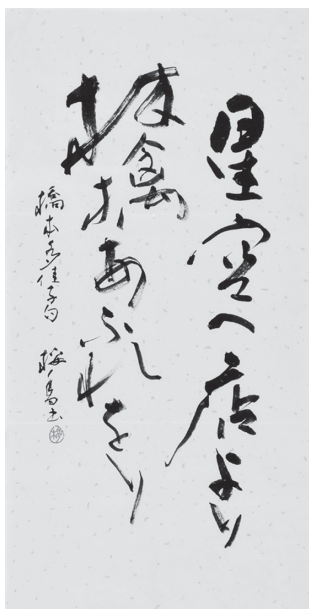 星空へ店より
林檎あふれをり
橋本多佳子句